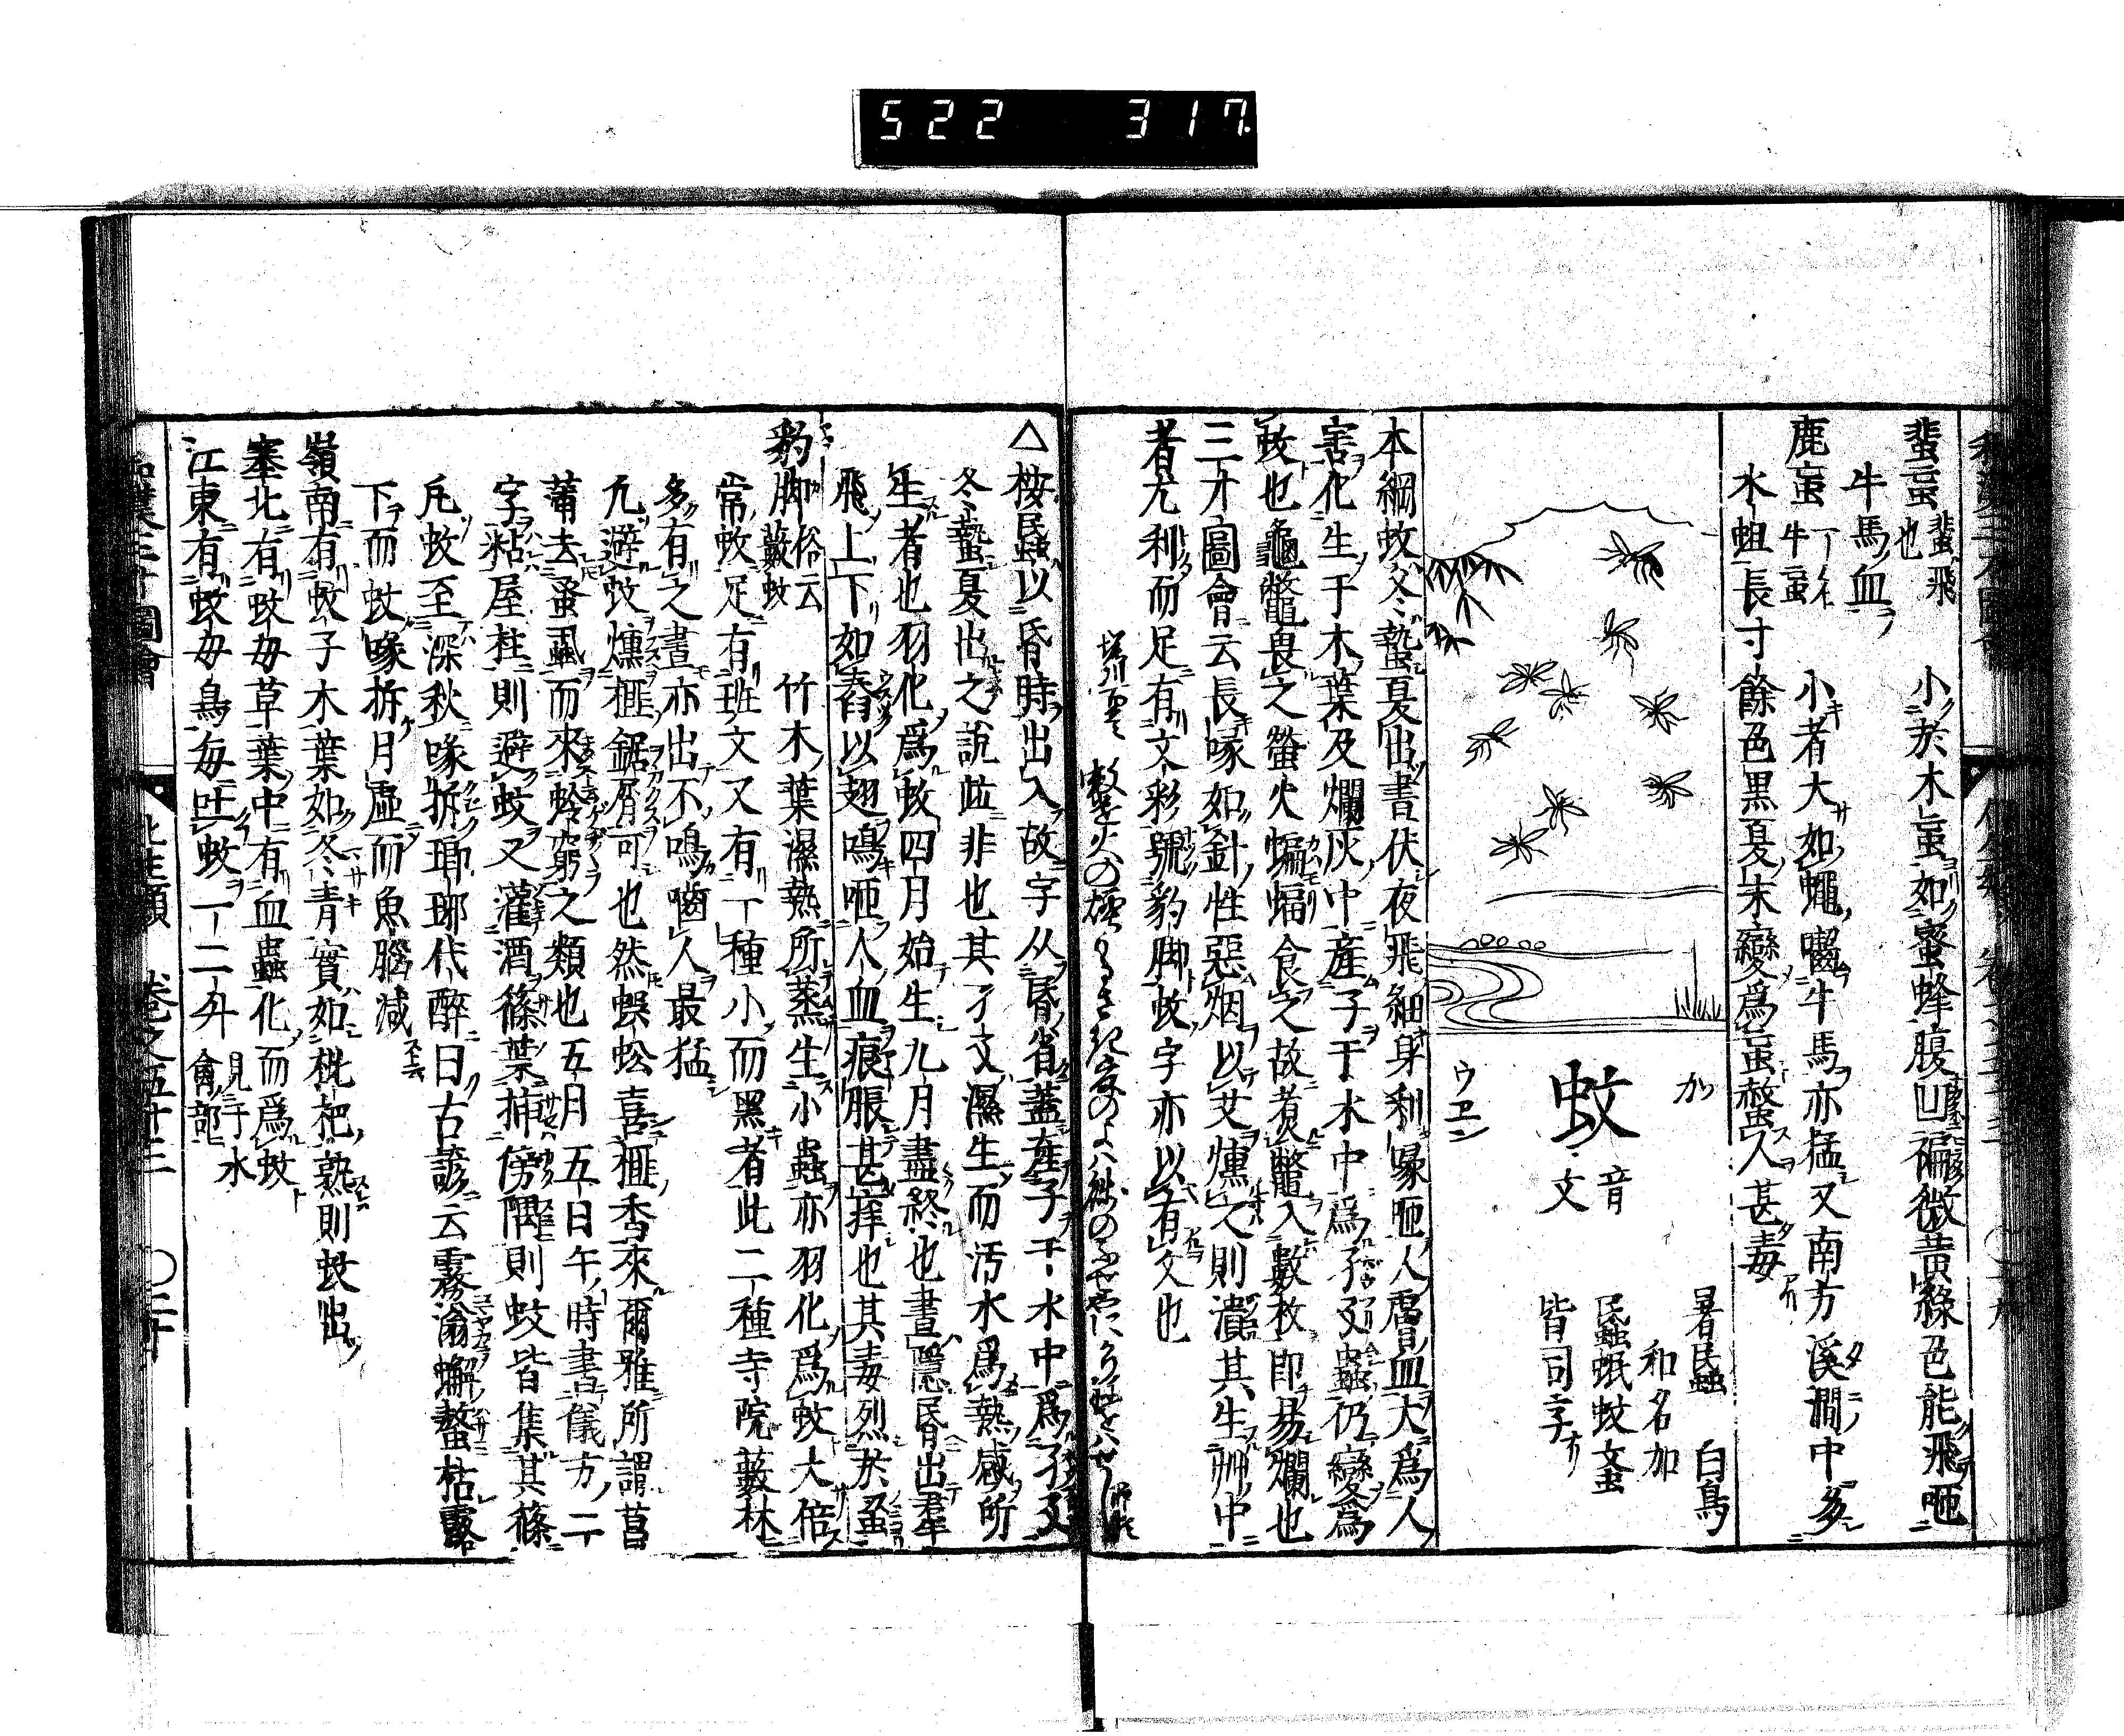 522 317.
蜚䖟 蜚飛也 小於木䖟如蜜蜂腹凹褊微黄緑色能飛咂
牛馬血
鹿䖟 一名牛䖟 小者大如蠅囓牛馬亦猛又南方溪澗中多
水蛆長寸餘色黒夏末變爲䖟螫人甚毒
か
蚊 音文
ウヱン
暑𧓹 白鳥
和名加
𧓹蚊䘇
皆同字
本綱蚊冬蟄夏出晝伏夜飛細身利喙咂人膚血大爲人
害化生于木葉及爛灰中産子于水中爲孑孑蟲仍變爲
蚊也龜鼈畏之螢火蝙蝠食之故煮鼈入數枚即易爛也
三才圖會云長喙如針性惡烟以艾燻之則潰其生艸中
者尤利而足有文彩號豹脚蚊字亦以有文也
△按𧓹以昏時出入故字从昏省蓋在子于水中爲孑孑
冬蟄夏出之説竝非也其孑孑濕生而汚水爲熱感所
生者也羽化爲蚊四月始生九月盡終也晝隱昏出羣
飛上下如舂以翅鳴咂人血痕脹甚痒也其毒烈於蚤
豹脚 俗云藪蚊 竹木葉濕熱所蒸生小蟲亦羽化爲蚊大倍
常蚊足有斑文又有一種小而黑者此二種寺院藪林
多有之晝亦出不鳴囓人最猛
凡避蚊燻榧鋸屑可也然蜈蚣喜榧香來爾雅所謂菖
蒲去蚤虱而來蛉窮之類也五月五日午時書儀方二
字粘屋柱則避蚊又灌酒篠葉插傍隅則蚊皆集其篠
凡蚊至深秋喙拆瑯琊代醉曰古諺云霧滃蠏螯枯露
下而蚊喙拆月虚而魚腦減
嶺南有蚊子木葉如冬青實如枇杷熟則蚊出
塞北有蚊母草葉中有血蟲化而爲蚊
江東有蚊母鳥毎吐蚊一二升 見于水禽部